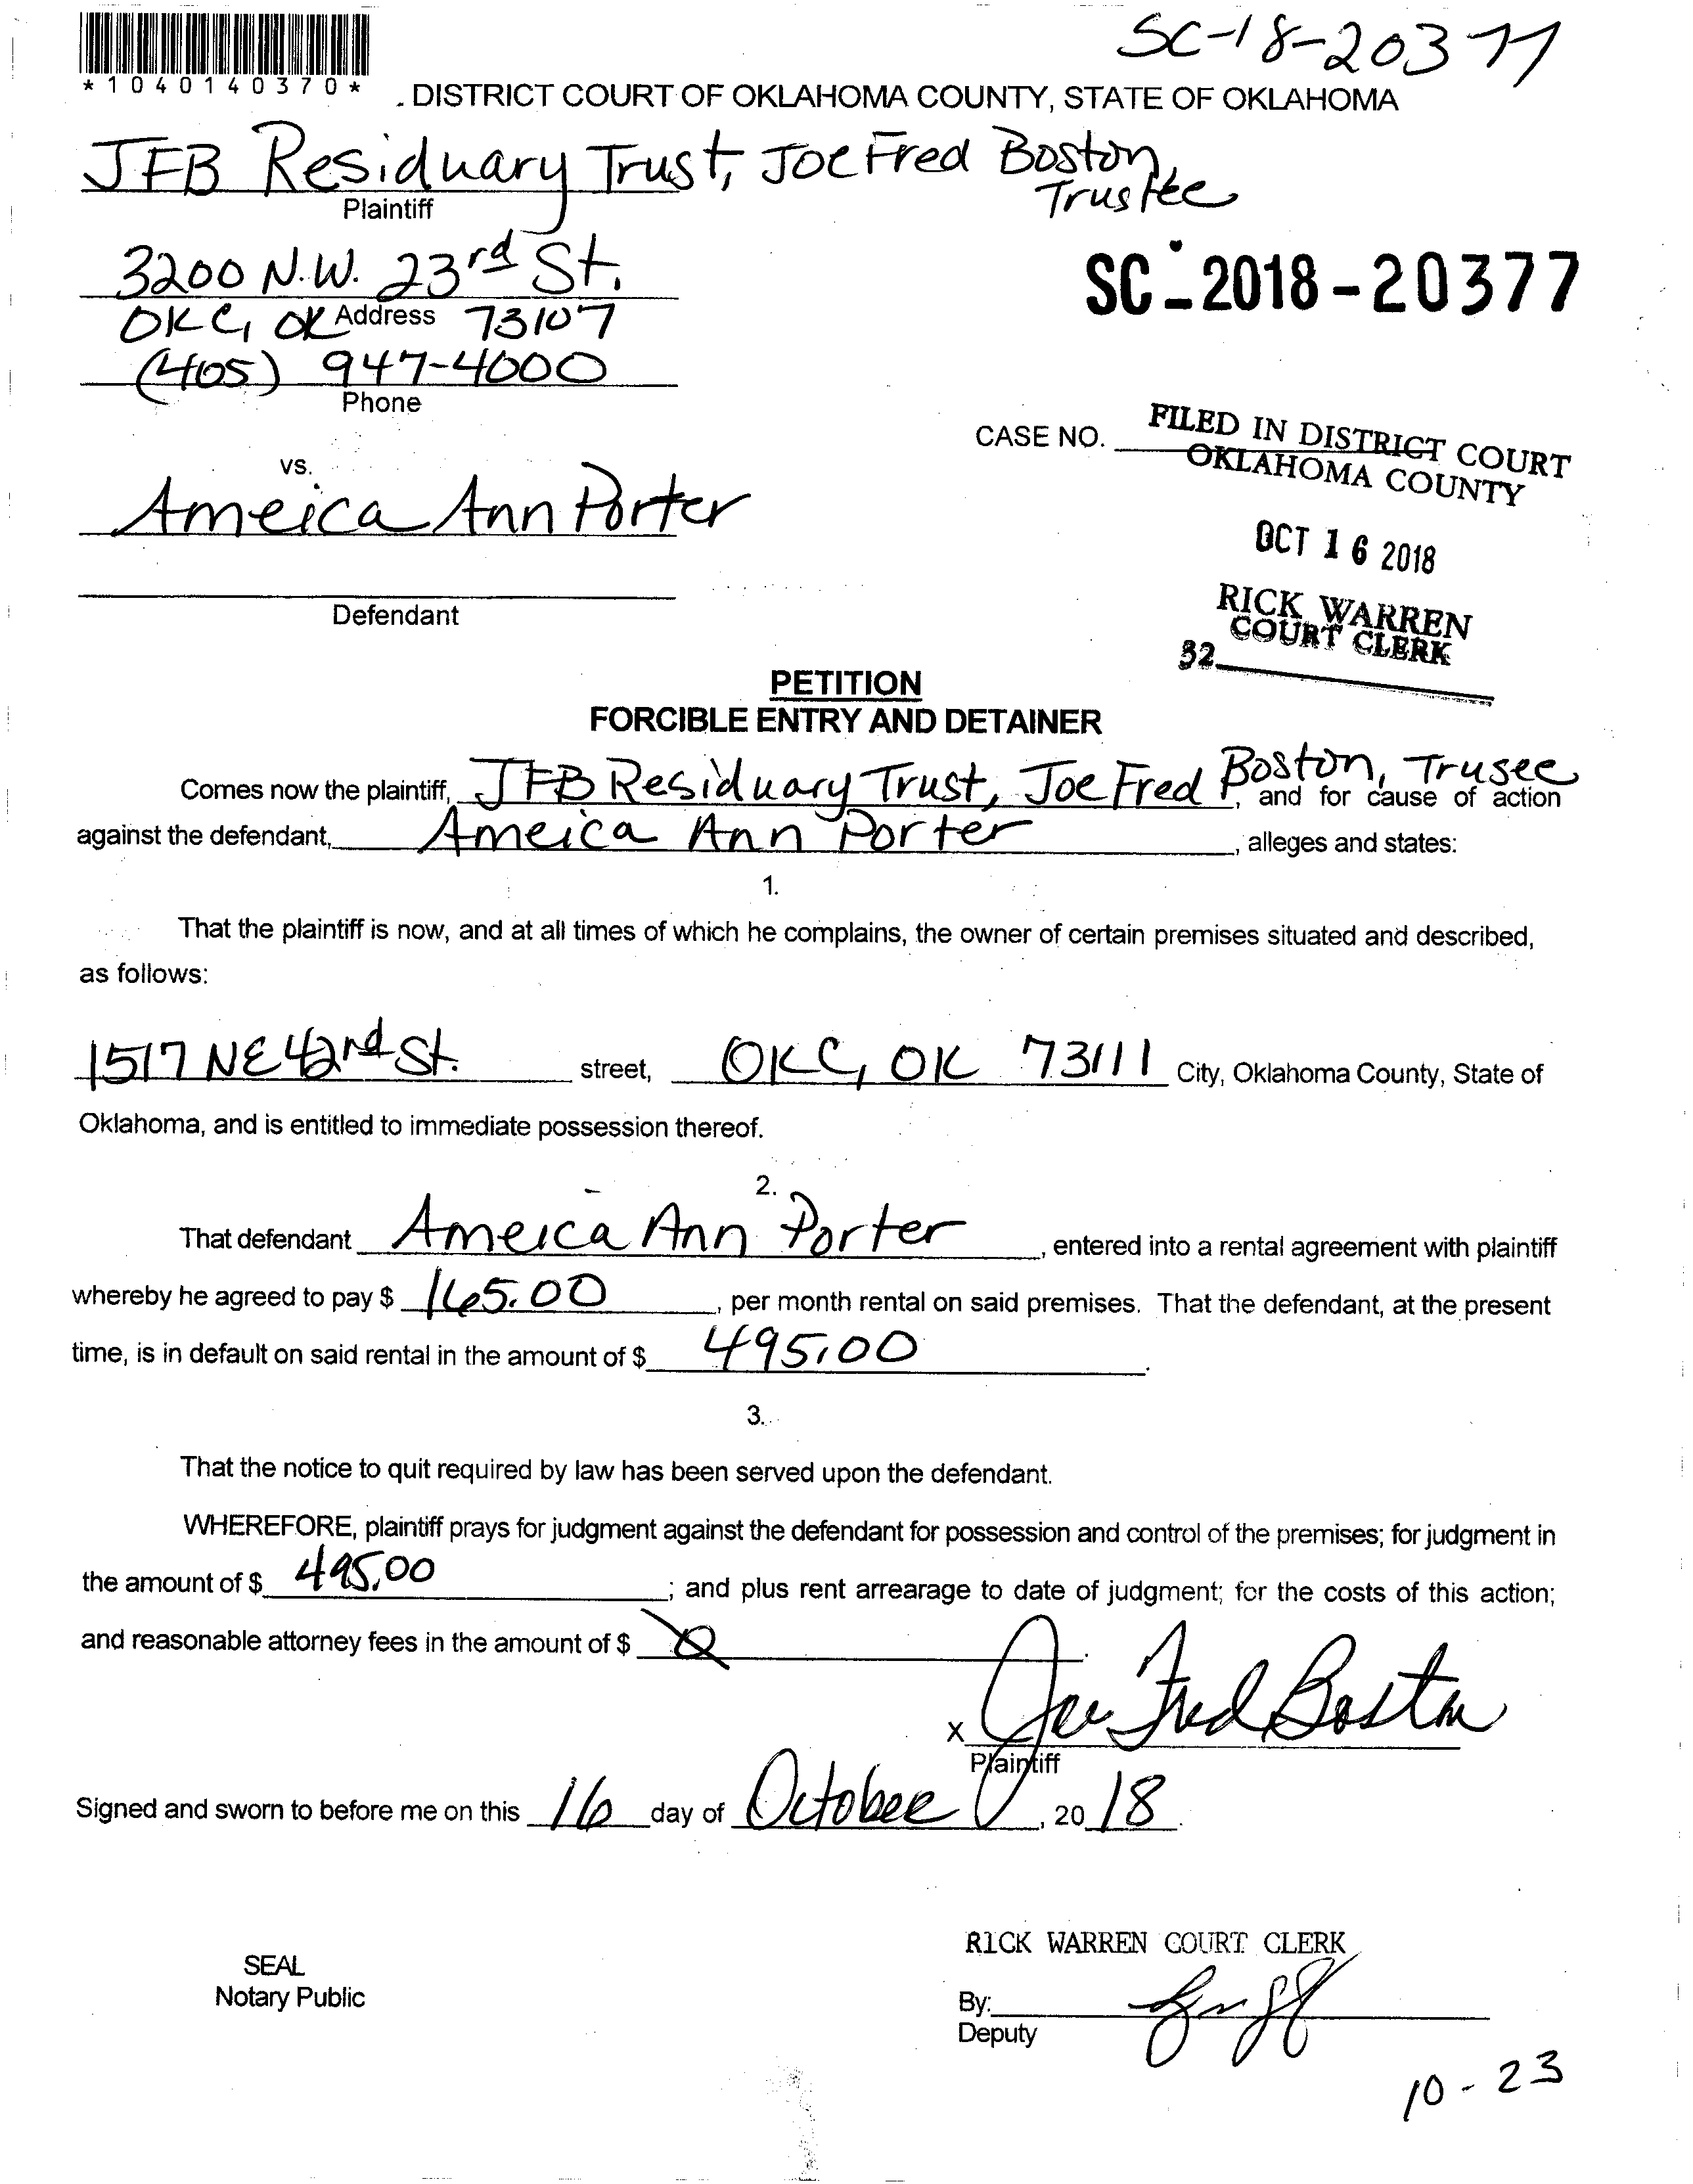 SC-18-20377
*1040140370*
DISTRICT COURT OF OKLAHOMA COUNTY, STATE OF OKLAHOMA
JFB Residuary Trust, Joe Fred Boston,
Trustee
Plaintiff
3200 N.W. 23rd St.
SC-2018-20377
OKC, OK Address 73107
(405) 947-4000
Phone
CASE NO.
FILED IN DISTRICT COURT
OKLAHOMA COUNTY
vs.
Ameica Ann Porter
OCT 16 2018
Defendant
RICK WARREN
COURT CLERK
32
PETITION
FORCIBLE ENTRY AND DETAINER
Comes now the plaintiff, JFB Residuary Trust, Joe Fred Boston, Trusee, and for cause of action
against the defendant, Ameica Ann Porter, alleges and states:
1.
That the plaintiff is now, and at all times of which he complains, the owner of certain premises situated and described,
as follows:
1517 NE 42nd St. street, OKC, OK 73111 City, Oklahoma County, State of
Oklahoma, and is entitled to immediate possession thereof.
2.
That defendant Ameica Ann Porter, entered into a rental agreement with plaintiff
whereby he agreed to pay $ 165.00, per month rental on said premises. That the defendant, at the present
time, is in default on said rental in the amount of $ 495.00.
3.
That the notice to quit required by law has been served upon the defendant.
WHEREFORE, plaintiff prays for judgment against the defendant for possession and control of the premises; for judgment in
the amount of $ 495.00; and plus rent arrearage to date of judgment; for the costs of this action;
and reasonable attorney fees in the amount of $ 0.
X Joe Fred Boston
Plaintiff
Signed and sworn to before me on this 16 day of October, 20 18.
RICK WARREN COURT CLERK
SEAL
Notary Public
By:
Deputy
10-23